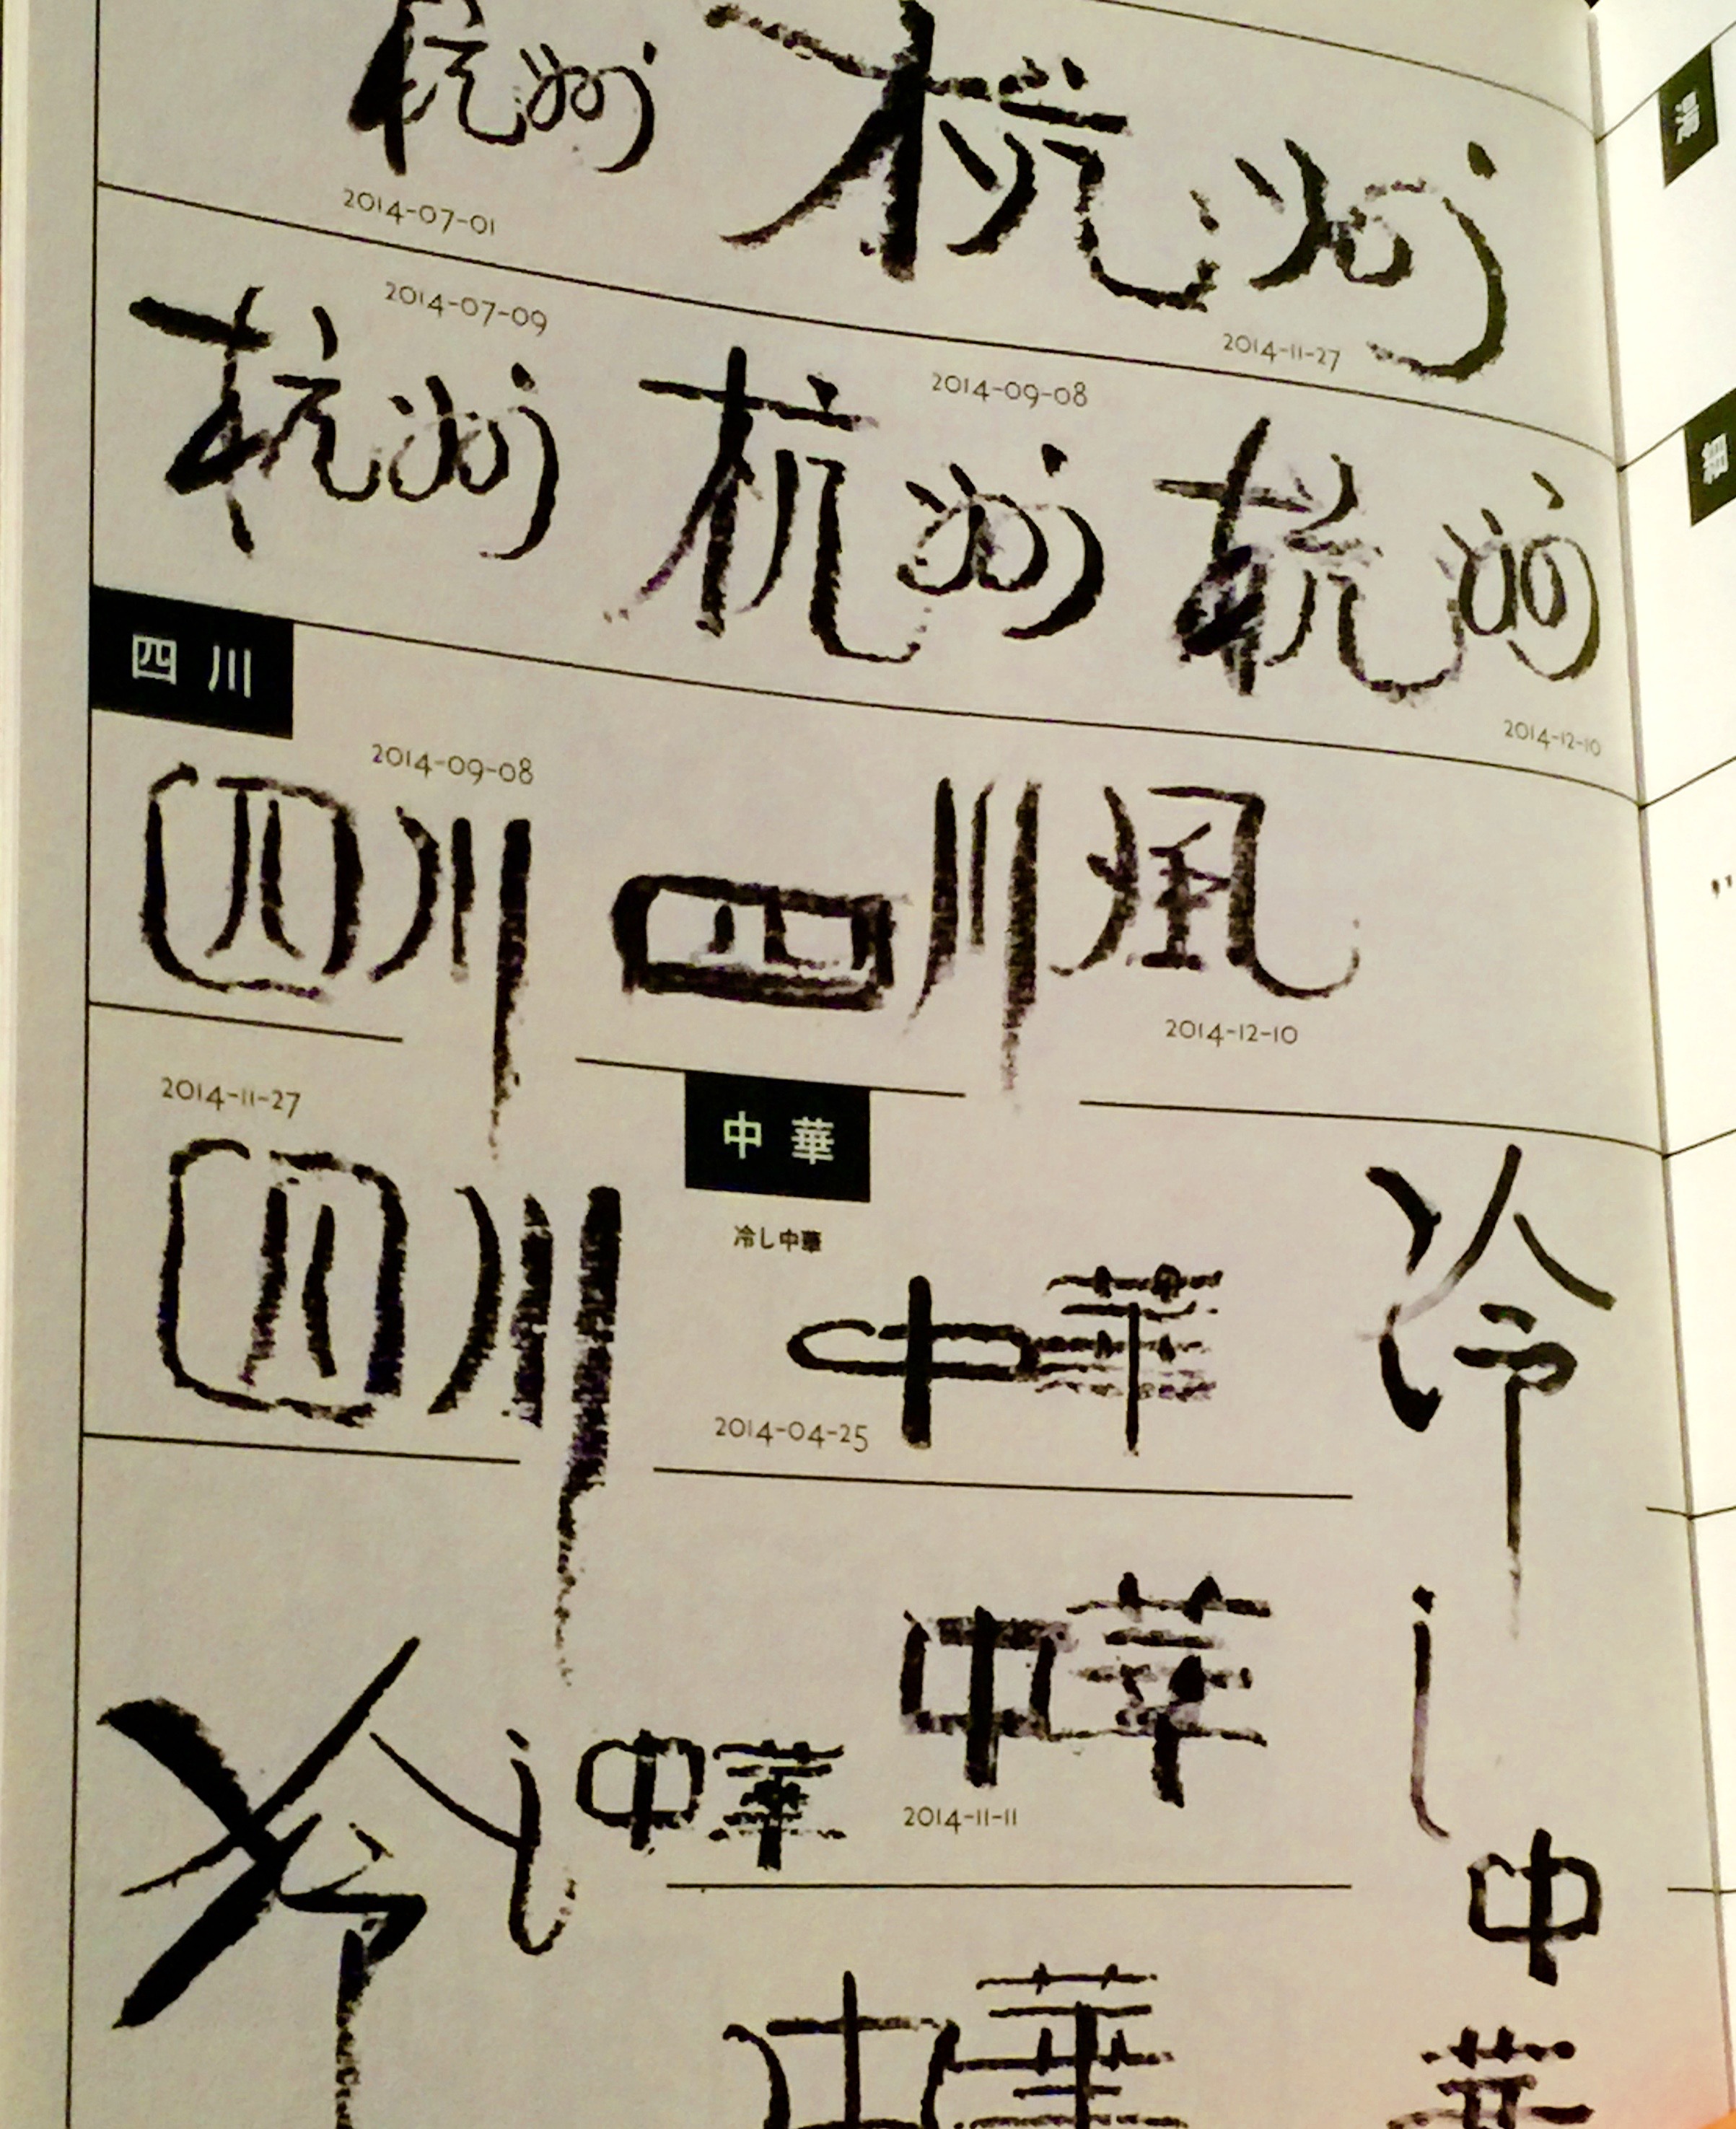 杭州 杭州
2014-07-01
2014-11-27
2014-07-09
2014-09-08
杭州 杭州 杭州
2014-12-10
四川
2014-09-08
四川 四川風
2014-12-10
2014-11-27
四川
中華
冷し中華
中華
2014-04-25
冷し中華
中華
2014-11-11
冷し中華
中華
湯
細